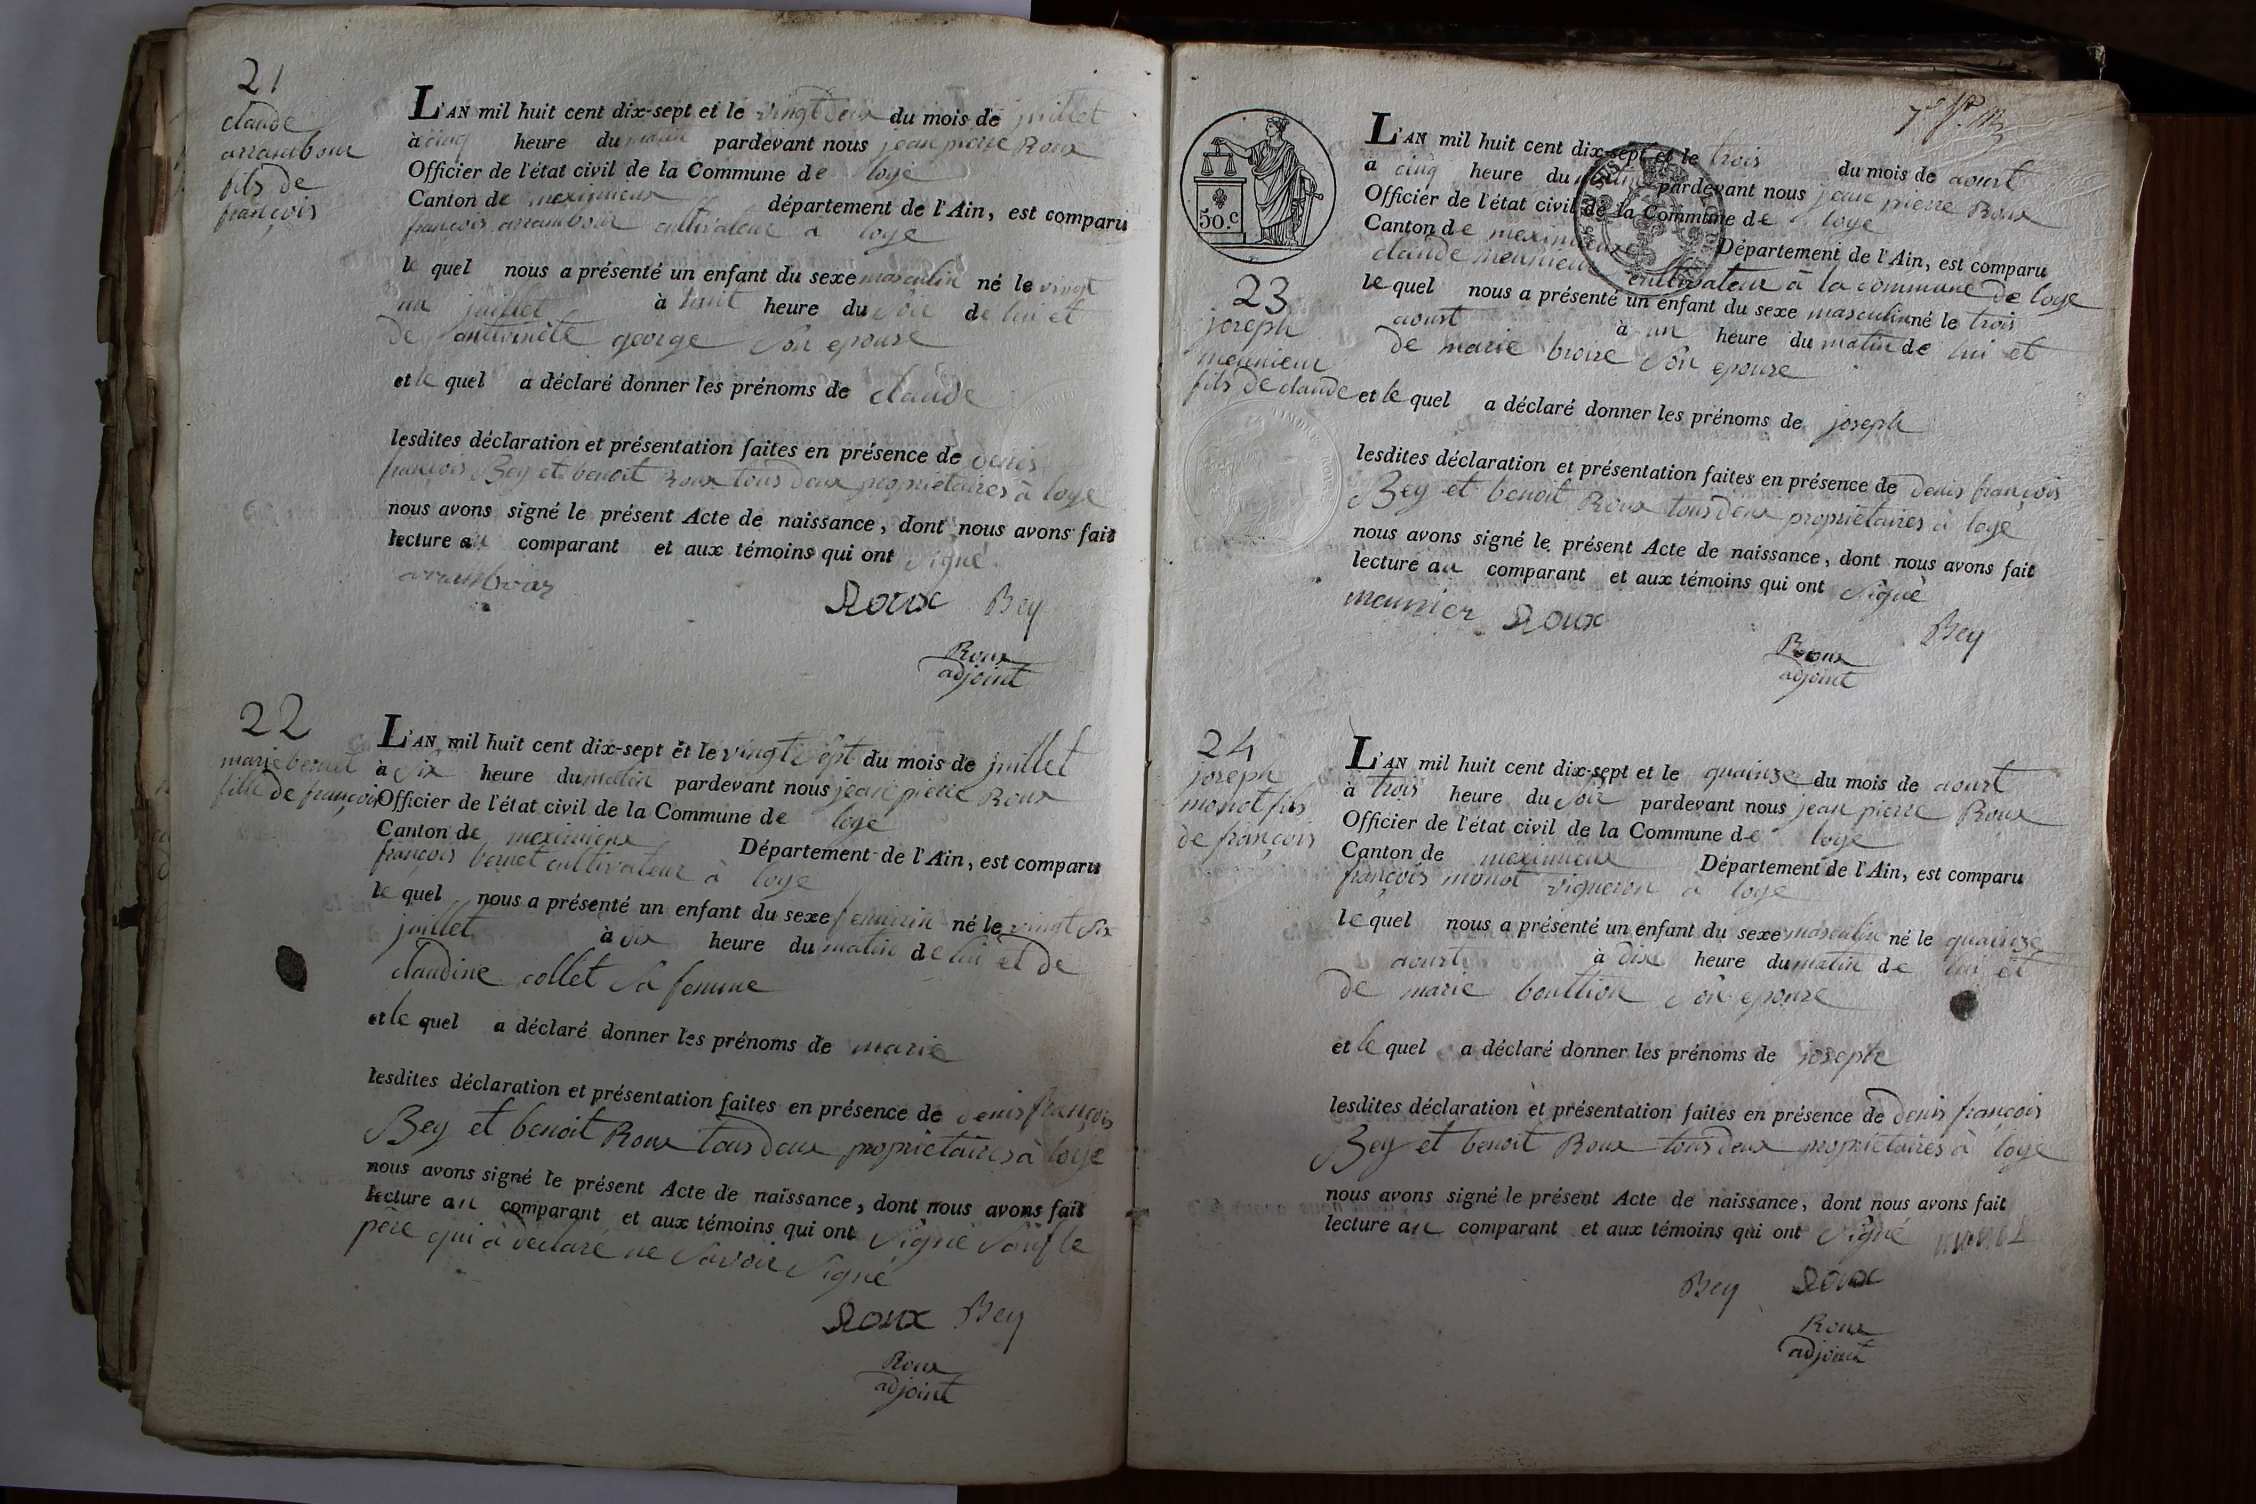 21
claude
arrambour
fils de
françois
L'AN mil huit cent dix-sept et le vingt deux du mois de juillet
à cinq heure du matin pardevant nous jean pierre Roux
Officier de l'état civil de la Commune de loye
Canton de meximieux département de l'Ain, est comparu
françois arrambour cultivateur a loye
le quel nous a présenté un enfant du sexe masculin né le vingt
un juillet à huit heure du soir de lui et
de antoinete george son epouse
et le quel a déclaré donner les prénoms de claude
lesdites déclaration et présentation faites en présence de denis
françois Bey et benoit Roux tous deux proprietaires à loye
nous avons signé le présent Acte de naissance, dont nous avons fait
lecture au comparant et aux témoins qui ont signé
arambour
Roux Bey
Roux
adjoint
22
marie bernet
fille de françois
L'AN mil huit cent dix-sept et le vingt sept du mois de juillet
à six heure du matin pardevant nous jean pierre Roux
Officier de l'état civil de la Commune de loye
Canton de meximieux Département de l'Ain, est comparu
françois bernet cultivateur à loye
le quel nous a présenté un enfant du sexe feminin né le vingt six
juillet à dix heure du matin de lui et de
claudine collet sa femme
et le quel a déclaré donner les prénoms de marie
lesdites déclaration et présentation faites en présence de denis françois
Bey et benoit Roux tous deux proprietaires à loye
nous avons signé le présent Acte de naissance, dont nous avons fait
lecture au comparant et aux témoins qui ont signé sauf le
père qui à déclaré ne savoir signé
Roux Bey
Roux
adjoint
50.c
23
joseph
meunieur
fils de claude
L'AN mil huit cent dix-sept et le trois du mois de aoust
a cinq heure du matin pardevant nous jean pierre Roux
Officier de l'état civil de la Commune de loye
Canton de meximieux Département de l'Ain, est comparu
claude meunieur cultivateur à la commune de loye
le quel nous a présenté un enfant du sexe masculin né le trois
aoust à un heure du matin de lui et
de marie broire son epouse
et le quel a déclaré donner les prénoms de joseph
lesdites déclaration et présentation faites en présence de denis françois
Bey et benoit Roux tous deux proprietaires à loye
nous avons signé le présent Acte de naissance, dont nous avons fait
lecture au comparant et aux témoins qui ont signé
meunier Roux
Bey
Roux
adjoint
24
joseph
monot fils
de françois
L'AN mil huit cent dix-sept et le quainze du mois de aoust
à trois heure du soir pardevant nous jean pierre Roux
Officier de l'état civil de la Commune de loye
Canton de meximieux Département de l'Ain, est comparu
françois monot vigneron a loye
le quel nous a présenté un enfant du sexe masculin né le quainze
aoust à dix heure du matin de lui et
de marie bouttion son epouse
et le quel a déclaré donner les prénoms de joseph
lesdites déclaration et présentation faites en présence de denis françois
Bey et benoit Roux tous deux proprietaires à loye
nous avons signé le présent Acte de naissance, dont nous avons fait
lecture au comparant et aux témoins qui ont signé
Bey Roux
Roux
adjoint